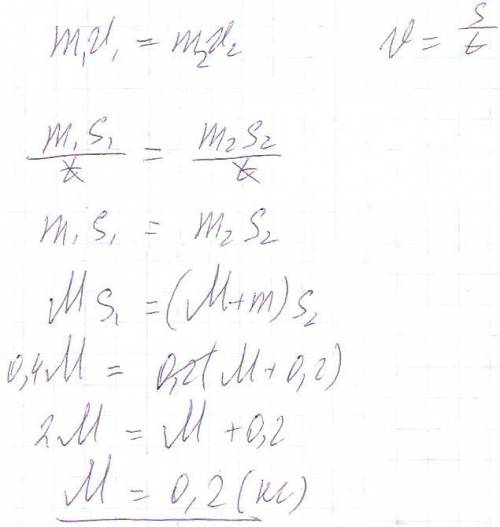 m₁v₁ = m₂v₂
v = s/t
m₁s₁/t = m₂s₂/t
m₁s₁ = m₂s₂
Ms₁ = (M+m)s₂
0,4M = 0,2(M+0,2)
2M = M+0,2
M = 0,2 (кг)